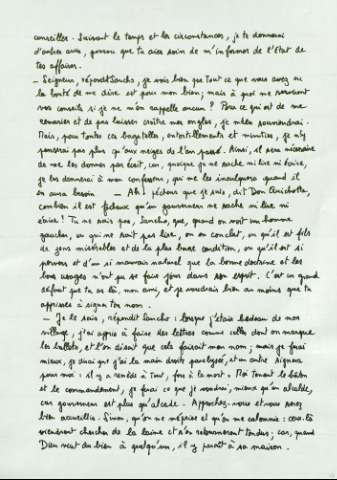 conseiller. Suivant le temps et les circonstances, je te donnerai
d'autres avis, pourvu que tu aies soin de m'informer de l'état de
tes affaires.
– Seigneur, répondit Sancho, je vois bien que tout ce que vous avez eu
la bonté de me dire est pour mon bien; mais à quoi me serviront
vos conseils si je ne m'en rappelle aucun ? Pour ce qui est de me
remarier et de pas laisser croître mes ongles, je m'en souviendrai.
Mais, pour toutes ces bagatelles, entortillements et minuties, je n'y
penserai pas plus qu'aux neiges de l'an passé. Ainsi, il sera nécessaire
de me les donner par écrit, car, quoique je ne sache ni lire ni écrire,
je les donnerai à mon confesseur, qui me les inculquera quand il
en aura besoin – Ah ! pécheur que je suis, dit Don Quichotte,
combien il est fâcheux qu'un gouverneur ne sache ni lire ni
écrire ! Tu ne sais pas, Sancho, que, quand on voit un homme
gaucher, ou qui ne sait pas lire, on en conclut, ou qu'il est fils
de gens misérables et de la plus basse condition, ou qu'il est si
pervers et d'un si mauvais naturel que la bonne doctrine et les
bons usages n'ont pu se faire jour dans son esprit. C'est un grand
défaut que tu as là, mon ami, et je voudrais bien au moins que tu
apprisses à signer ton nom.
– Je le sais, répondit Sancho : lorsque j'étais bedeau de mon
village, j'ai appris à faire des lettres comme celles dont on marque
les ballots, et l'on disait que cela faisait mon nom; mais je ferai
mieux, je dirai que j'ai la main droite paralysée, et un autre signera
pour moi : il y a remède à tout, fors à la mort. Moi tenant le bâton
et le commandement, je ferai ce que je voudrai, mieux qu'un alcalde,
car gouverneur est plus qu'alcade. Approchez-vous et vous serez
bien accueillis. Sinon, qu'on me méprise et qu'on me calomnie : ceux-là
viendront chercher de la laine et s'en retourneront tondus; car, quand
Dieu veut du bien à quelqu'un, il y paraît à sa maison.